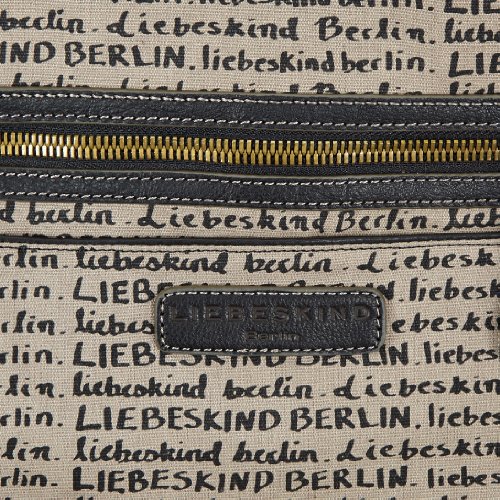 liebeskind Berlin. lieb
KIND BERLIN. liebeskind berlin. LIEBE
berlin. Liebeskind Berlin. liebe
liebeskind berlin. Liebesk
rlin. LIEBESKIND BERLIN. liebes
LIEBESKIND
Berlin
LIEBESKIND BERLIN. liebe
rlin. liebeskind berlin. Liebeski
erlin. LIEBESKIND BERLIN. liebesk
in. liebeskind berlin. Liebeskind
rlin. LIEBESKIND BERLIN. liebesk